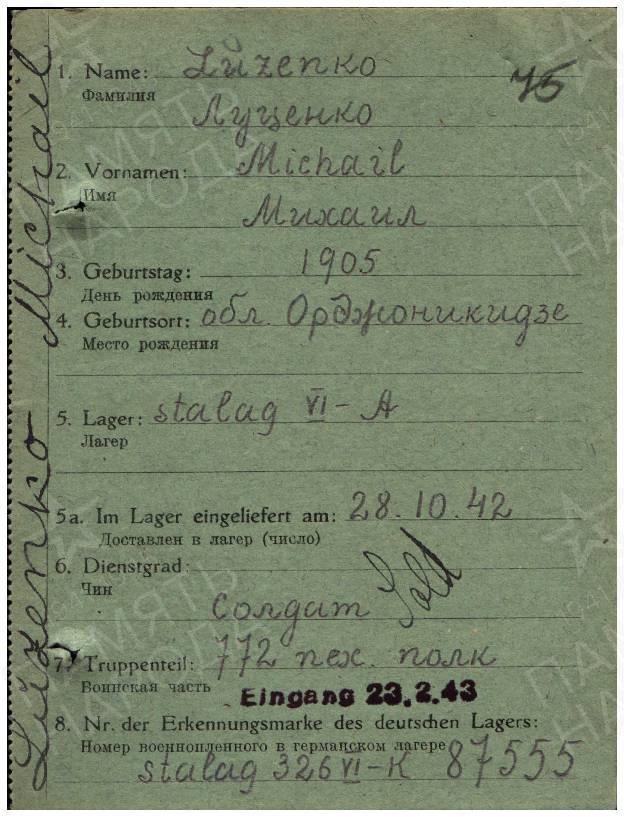 1. Name: Lŭzenko
Фамилия
Луценко
75
2. Vornamen: Michail
Имя
Михаил
3. Geburtstag: 1905
День рождения
4. Geburtsort: обл. Орджоникидзе
Место рождения
5. Lager: stalag VI-A
Лагер
5a. Im Lager eingeliefert am: 28.10.42
Доставлен в лагер (число)
6. Dienstgrad:
Чин
солдат Sold
7. Truppenteil: 772 пех. полк
Воинская часть
Eingang 23.2.43
8. Nr. der Erkennungsmarke des deutschen Lagers:
Номер военнопленного в германском лагере
stalag 326 VI-K 87555
Lŭzenko Michail
ПАМЯТЬ
НАРОДА